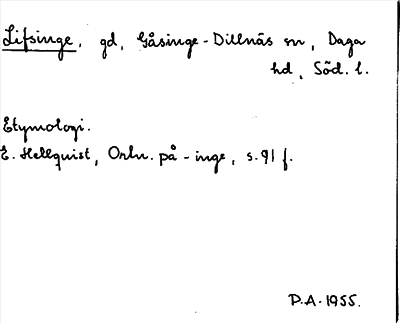 Lifsinge, gd, Gåsinge-Dillnäs sn, Daga
hd, Söd. l.
Etymologi.
E. Hellquist, Ortn. på -inge, s. 91 f.
P.A. 1955.